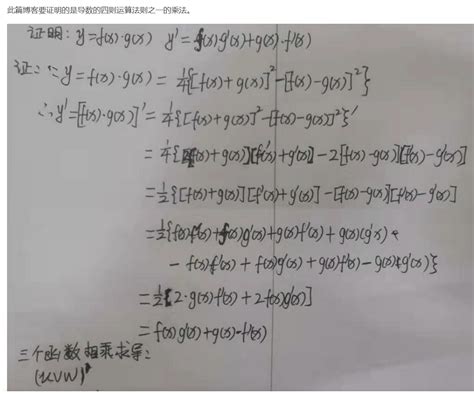 此篇博客要证明的是导数的四则运算法则之一的乘法。
证明: y=f(x)·g(x) y'=f(x)g'(x)+g(x)·f'(x)
证: ∵y=f(x)·g(x)=1/4{[f(x)+g(x)]²-[f(x)-g(x)]²}
∴y'=[f(x)·g(x)]'=1/4{[f(x)+g(x)]²-[f(x)-g(x)]²}'
=1/4{2[f(x)+g(x)][f'(x)+g'(x)]-2[f(x)-g(x)][f'(x)-g'(x)]
=1/2{[f(x)+g(x)][f'(x)+g'(x)]-[f(x)-g(x)][f'(x)-g'(x)]}
=1/2{f(x)f'(x)+f(x)g'(x)+g(x)f'(x)+g(x)g'(x)
-f(x)f'(x)+f(x)g'(x)+g(x)f'(x)-g(x)g'(x)}
=1/2[2·g(x)f'(x)+2f(x)g'(x)]
=f(x)g'(x)+g(x)·f'(x)
三个函数相乘求导:
(UVW)'